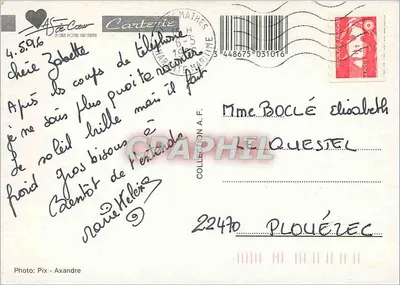 AS de Cœur
Carterie
4.5.96
Chère Zabette
Après les coups de téléphone
je ne sais plus quoi te raconter
Le soleil brille mais il fait
froid Gros bisous à
Bientôt de t'entendre
Marie Hélène
Photo: Pix - Axandre
COLLECTION A.F.
CHARENTE MARITIME
3 448675 031016
Mme BOCLÉ Elisabeth
LE QUESTEL
22470 PLOUÉZEC
CPAPHIL